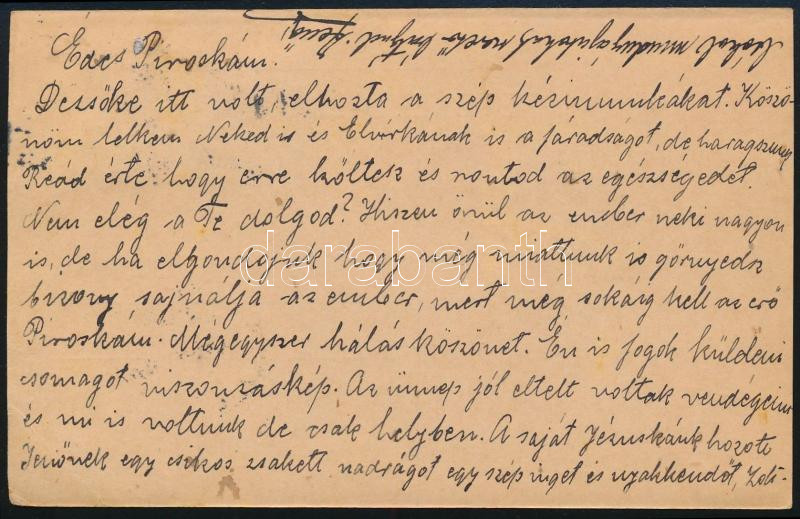 Édes Piroskám!
Dezsőke itt volt, elhozta a szép kézimunkákat. Köszö-
nöm lelkem Neked is és Elvirkának is a fáradságot, de haragszunk
Reád érte hogy erre költesz és rontod az egészségedet.
Nem elég a Te dolgod? Hiszen örül az ember neki nagyon
is, de ha elgondoljuk hogy még miattunk is görnyedsz
bizony sajnálja az ember, mert még sokáig kell az erő
Piroskám. Mégegyszer hálás köszönet. Én is fogok küldeni
csomagot viszonzáskép. Az ünnep jól eltelt voltak vendégeink
és mi is voltunk de csak helyben. A saját Jézuskánk hozott
Jenőnek egy csikos zsakett nadrágot egy szép inget és nyakkendőt, Zoli-
darabanth